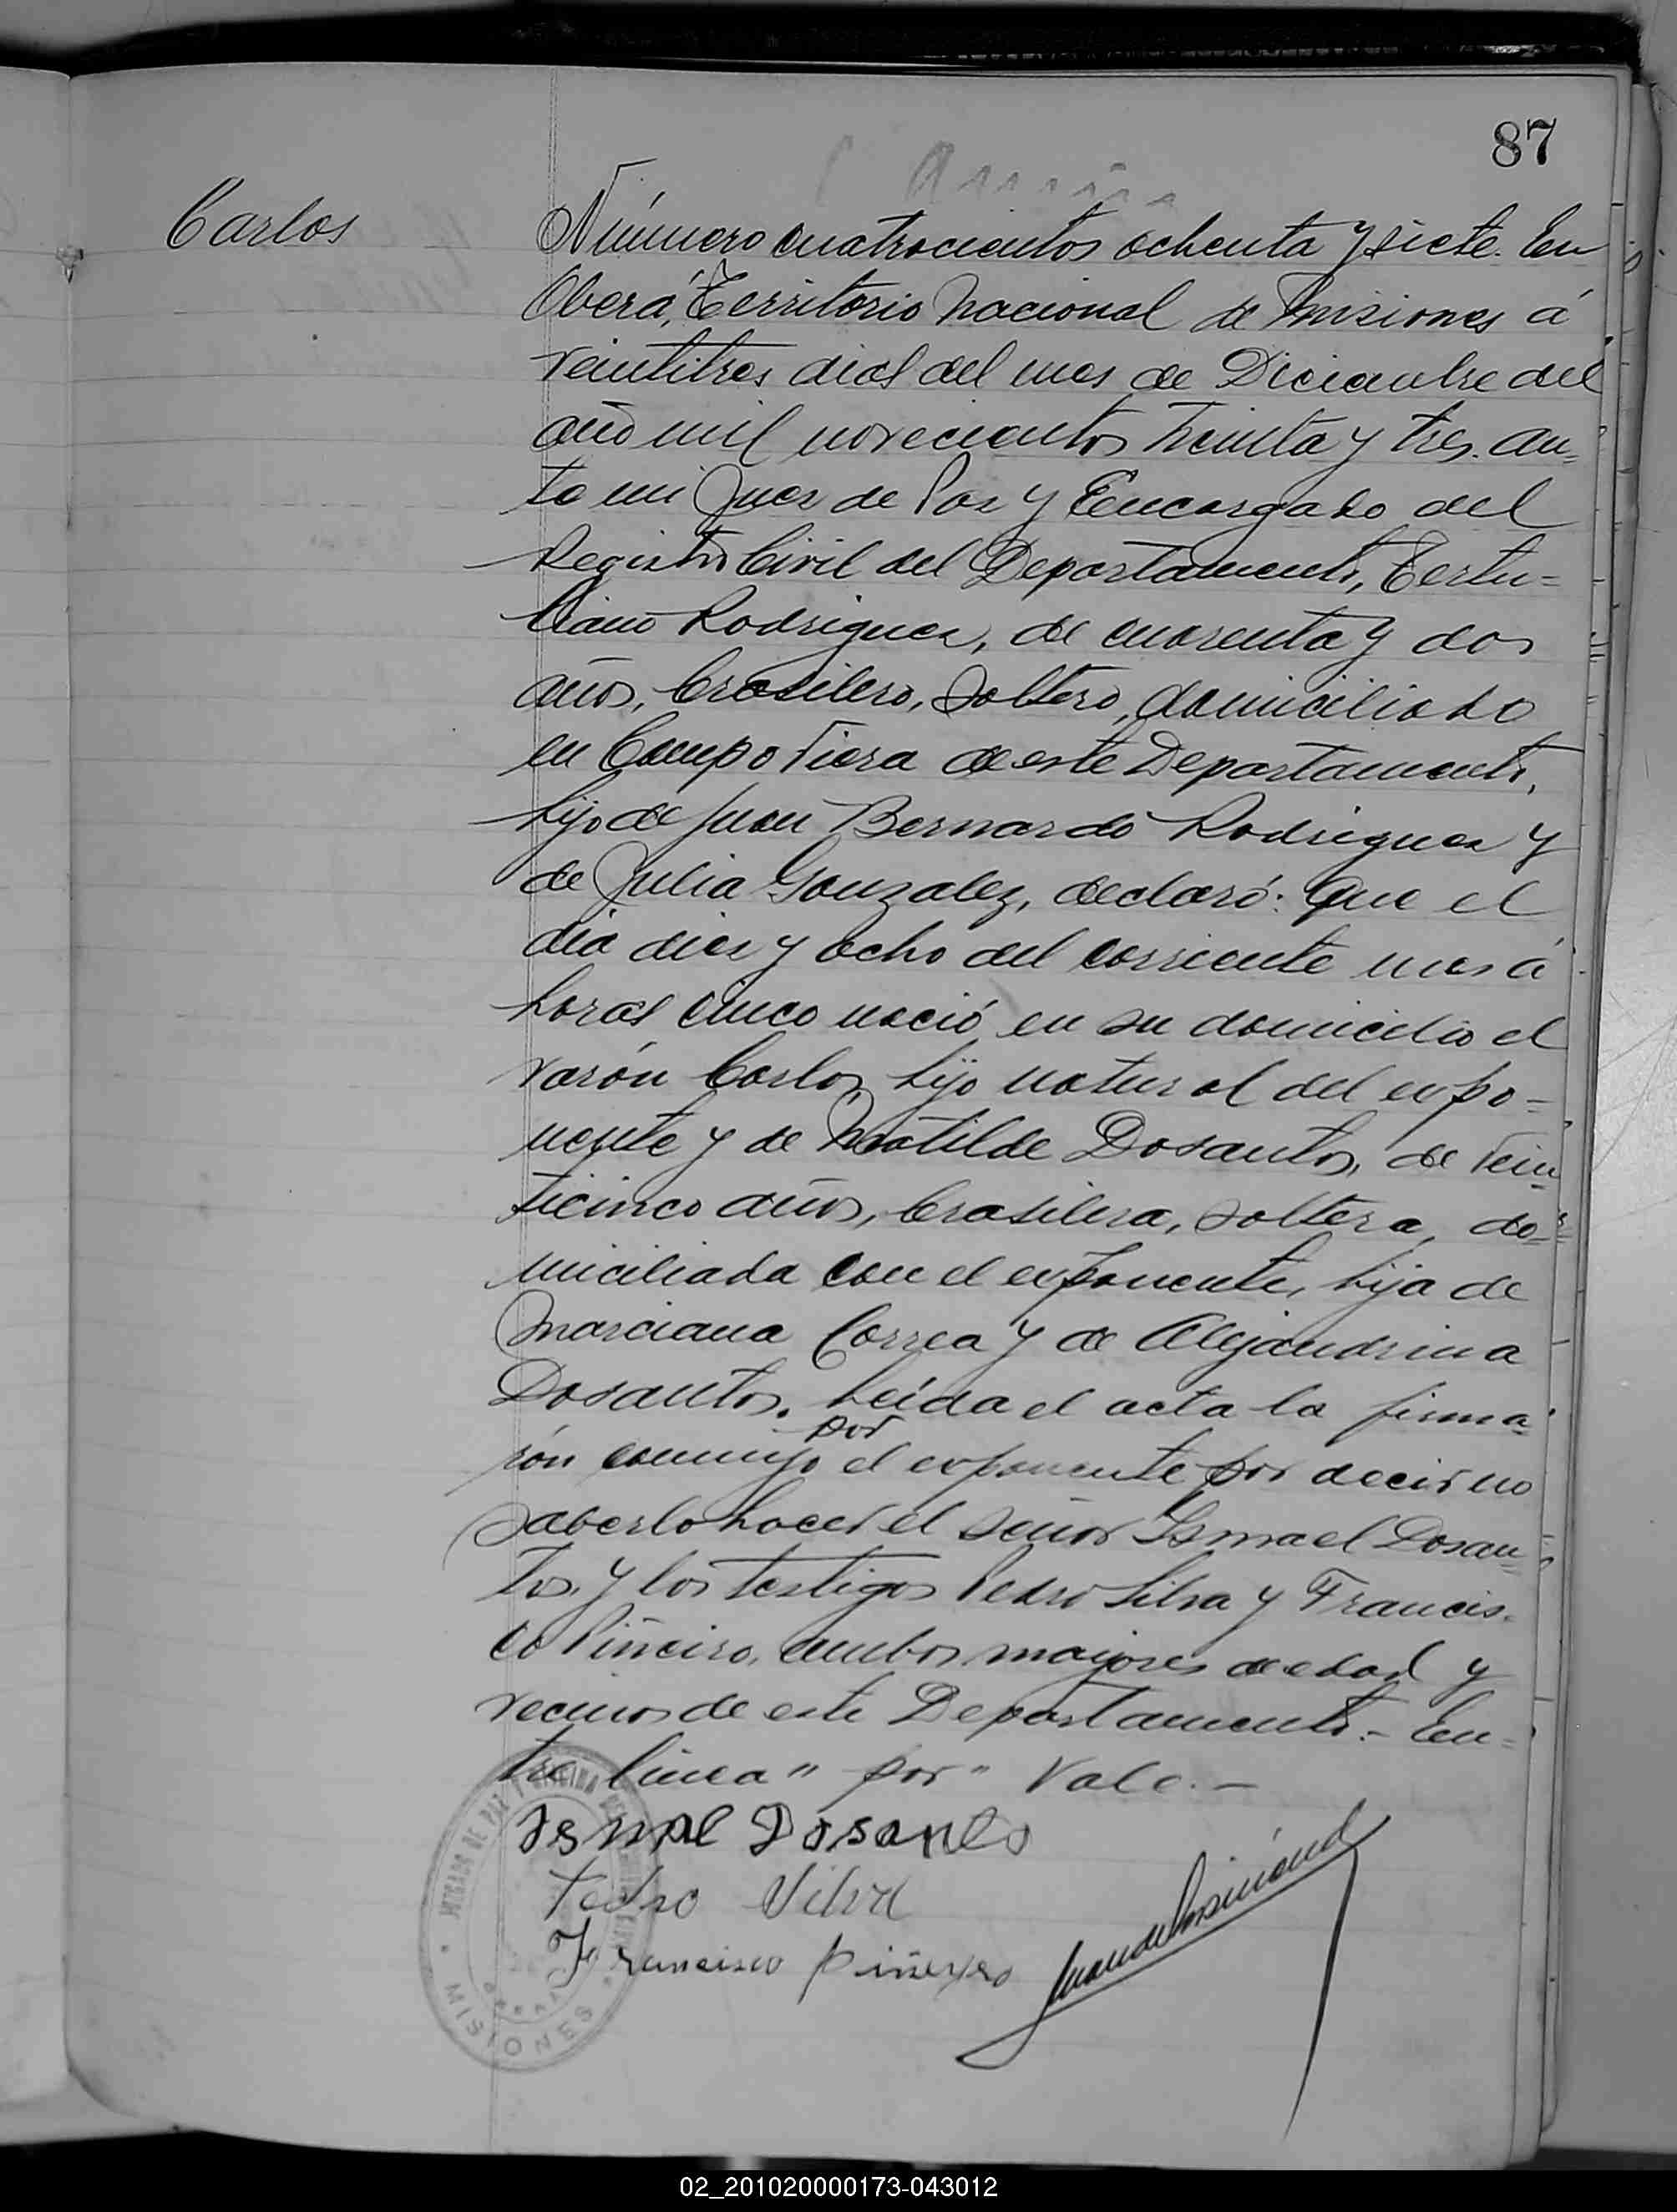 87
Carlos
Número cuatrocientos ochenta y siete. En
Oberá, Territorio Nacional de Misiones á
veintitres dias del mes de Diciembre del
año mil novecientos treinta y tres. an=
te mi Juez de Paz y Encargado del
Registro Civil del Departamento, Tertu=
liano Rodriguez, de cuarenta y dos
años, brasilero, soltero, domiciliado
en Campo Viera de este Departamento,
hijo de Juan Bernardo Rodriguez y
de Julia Gonzalez, declaró: Que el
dia diez y ocho del corriente mes á
horas cinco nació en su domicilio el
varón Carlos, hijo natural del expo=
nente y de Matilde Dosantos, de vein=
ticinco años, brasilera, soltera, do=
miciliada con el exponente, hija de
Marciana Correa y de Alejandrina
Dosantos. Leida el acta la firma=
por
rón conmigo el exponente por decir no
saberlo hacer el señor Ismael Dosan=
tos, y los testigos Pedro Silva y Francis=
co Piñeiro, ambos mayores de edad y
vecinos de este Departamento.- En=
tre linea " por " Vale.-
Ismael Dosantos
Pedro Silva
Francisco Piñeyro
JUZGADO DE PAZ
MISIONES
02_201020000173-043012